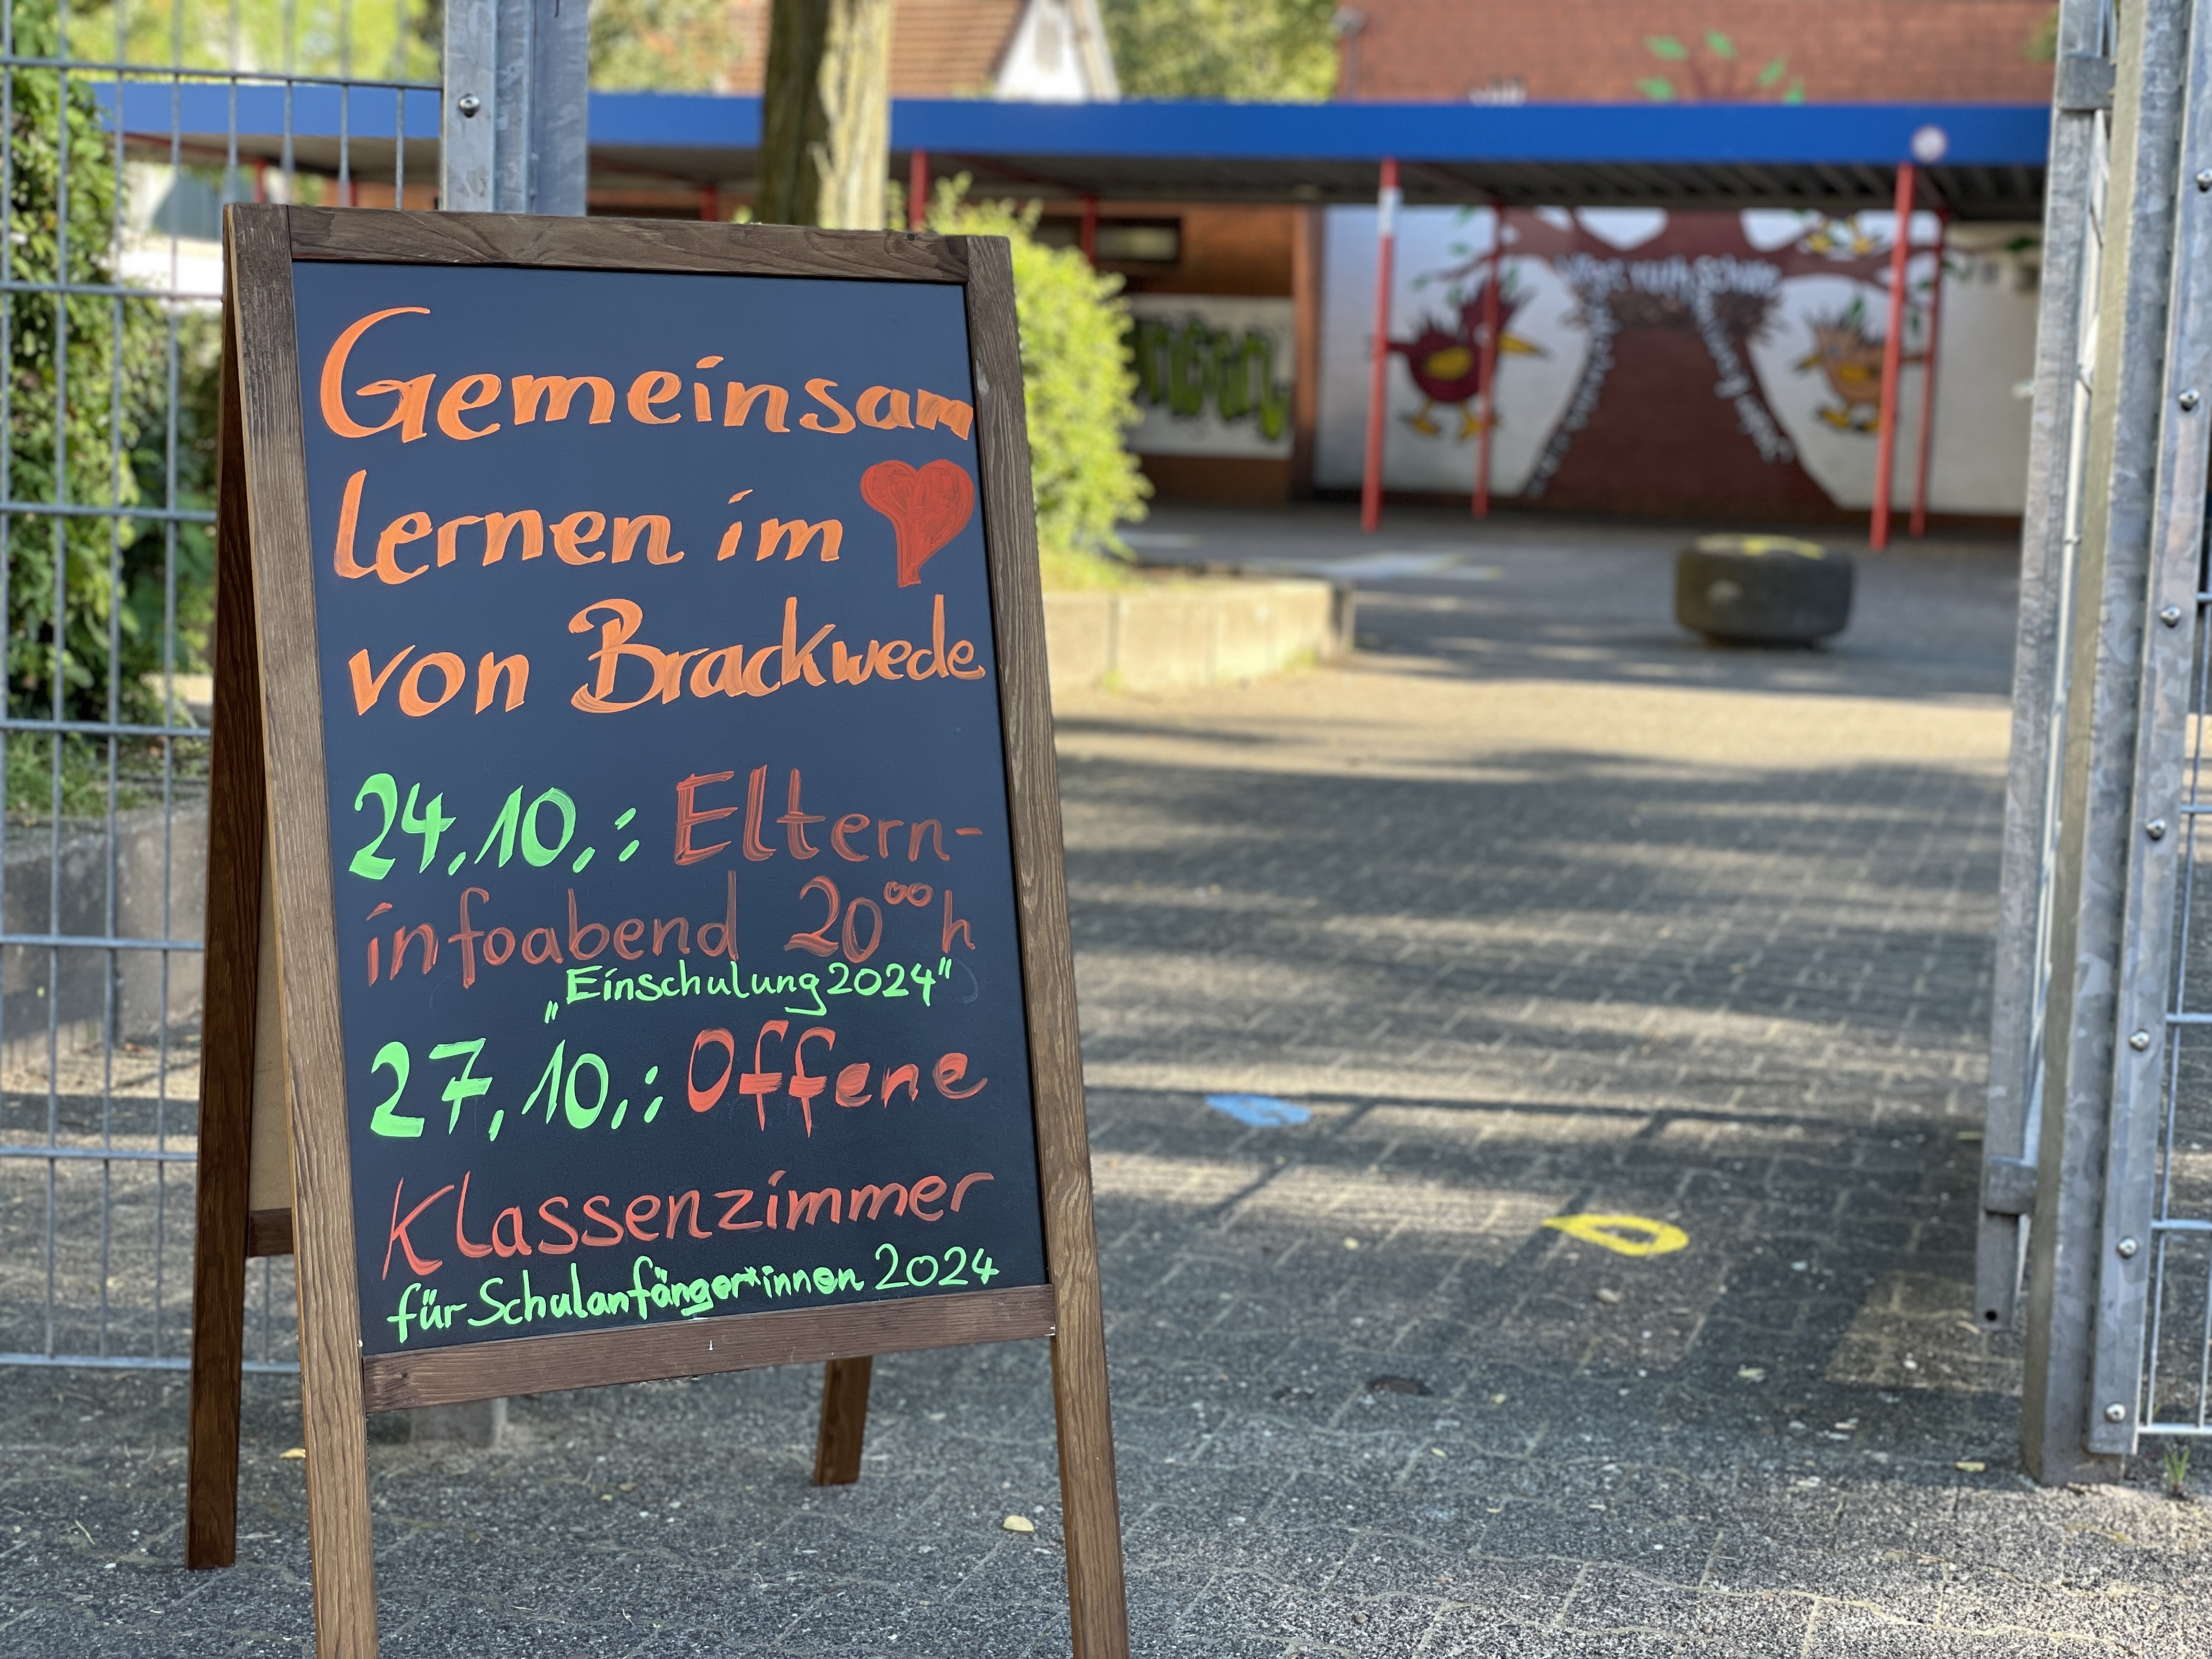 Gemeinsam
lernen im
von Brackwede
24.10.: Eltern-
infoabend 20⁰⁰ h
„Einschulung 2024"
27.10.: Offene
Klassenzimmer
für Schulanfänger*innen 2024